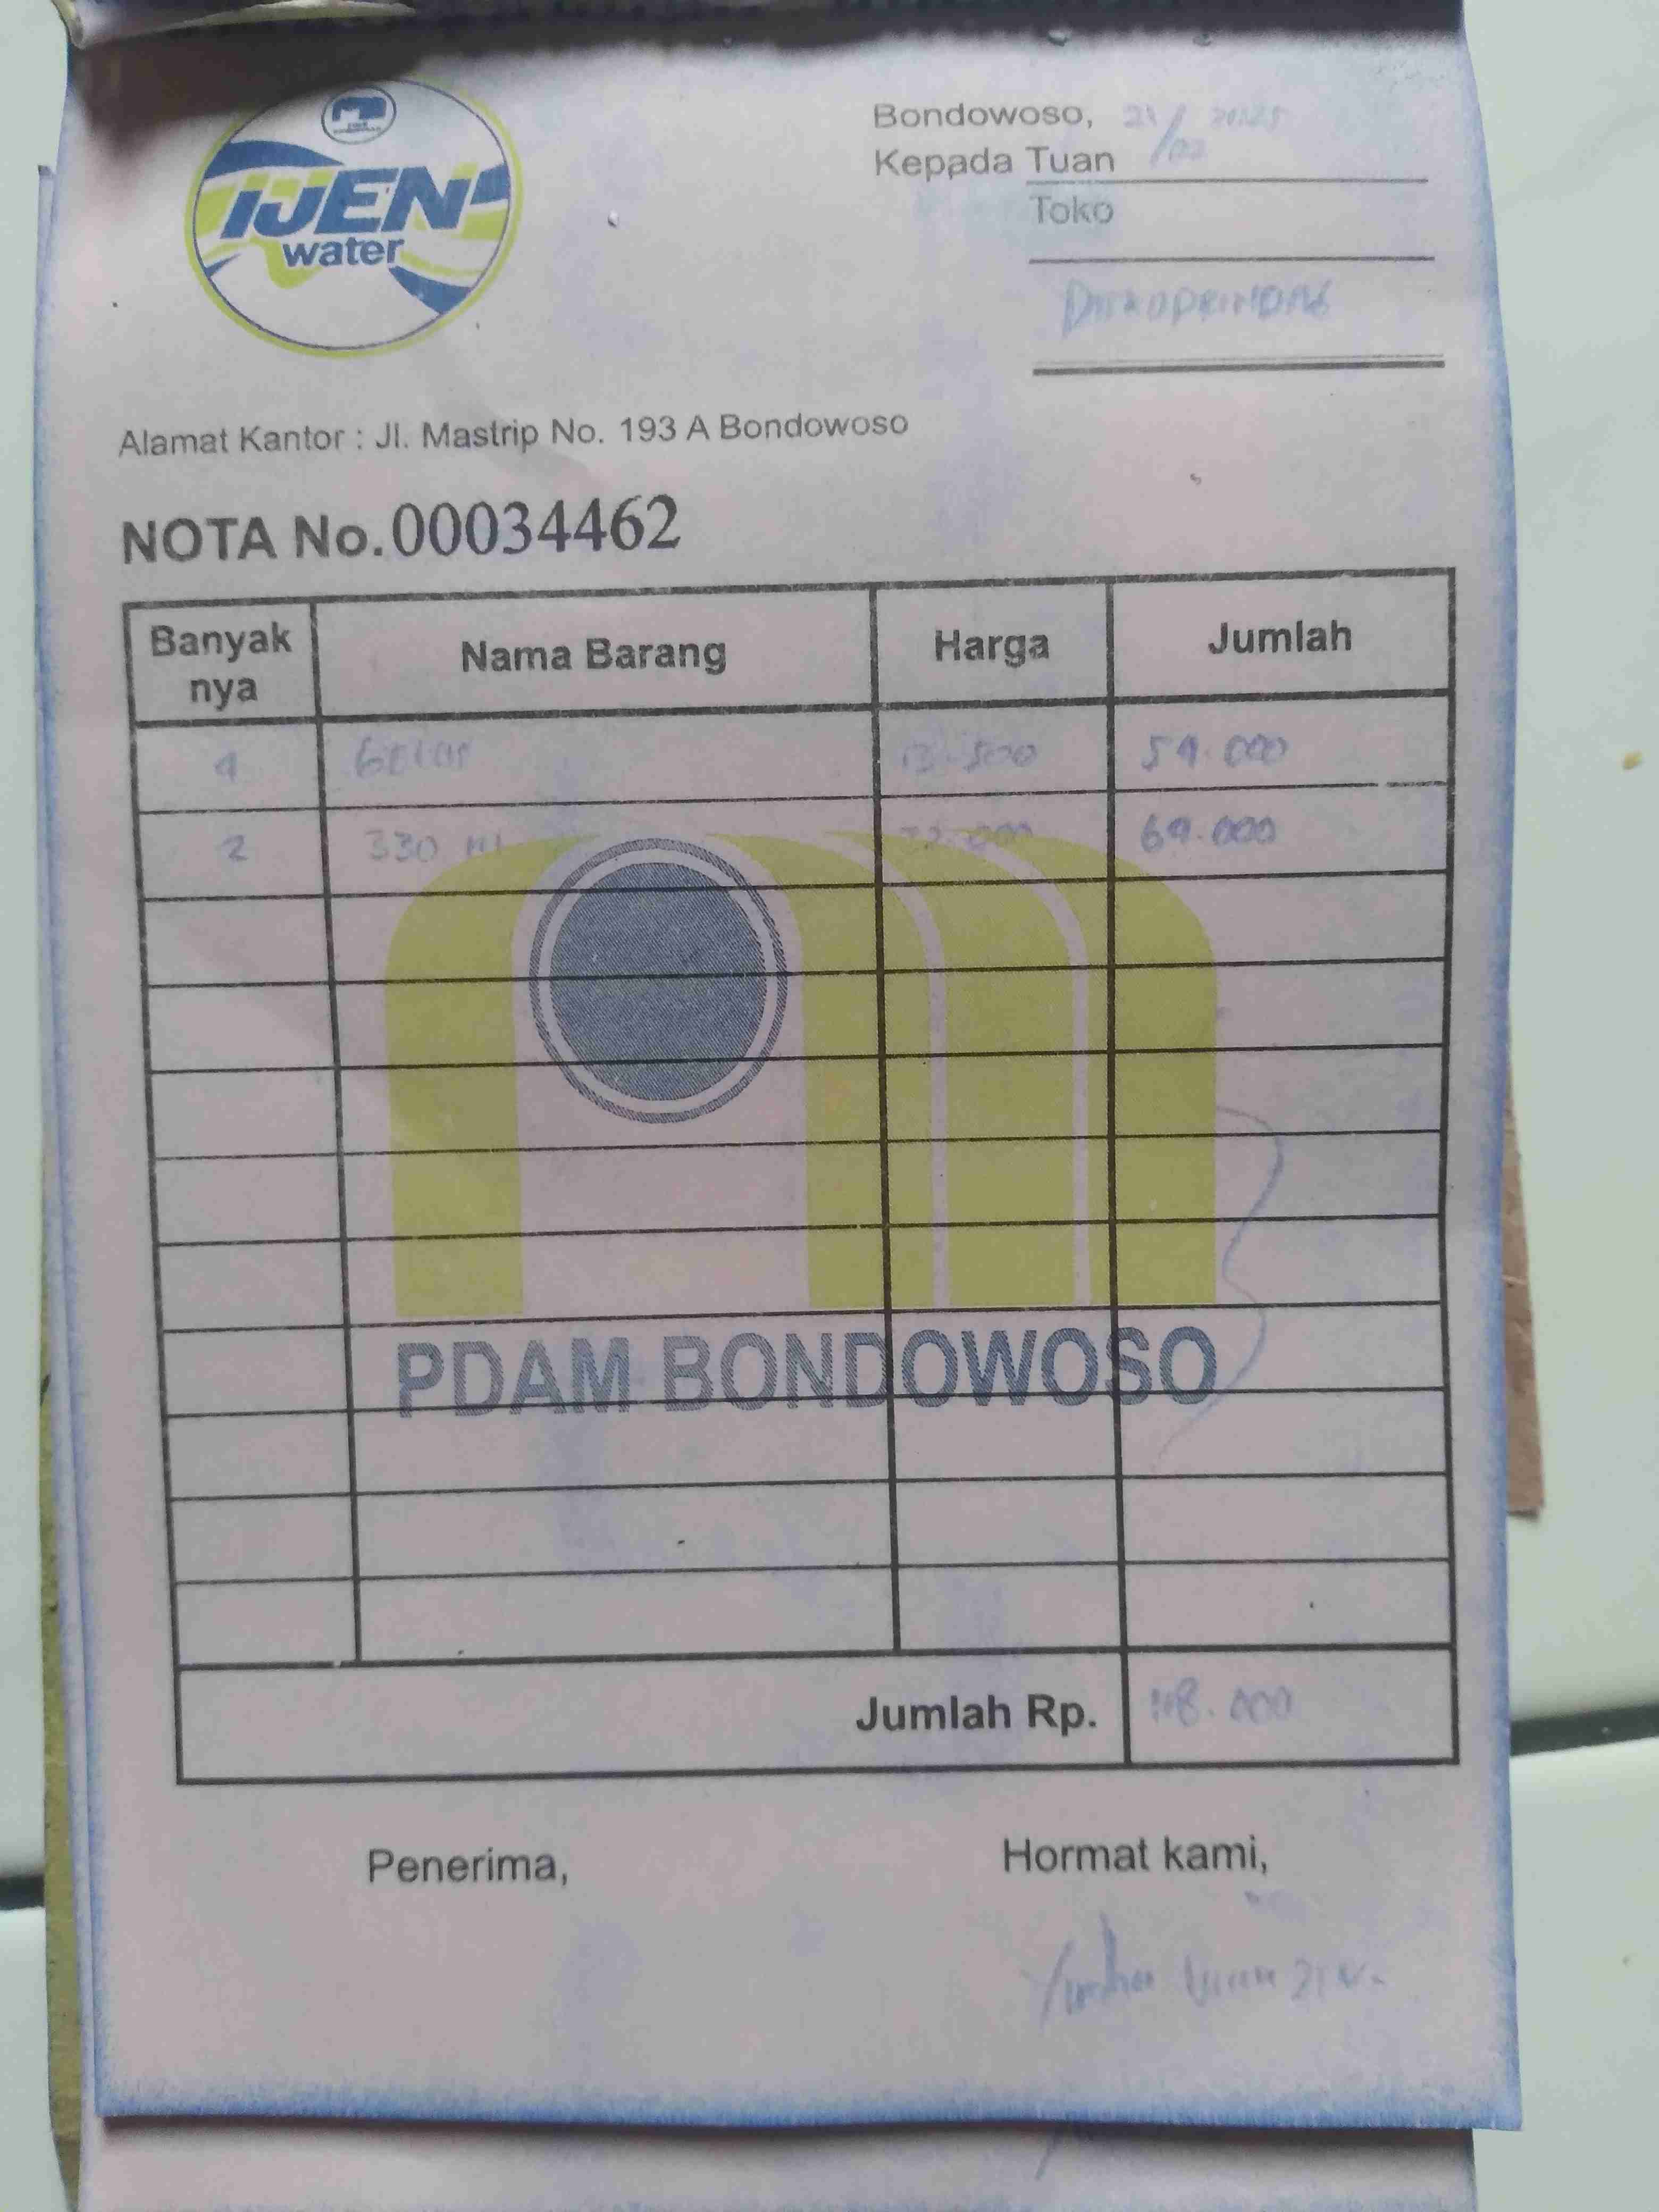 IJEN
water
Bondowoso, 21/02 2025
Kepada Tuan
Toko
Alamat Kantor : Jl. Mastrip No. 193 A Bondowoso
NOTA No. 00034462
Banyak nya Nama Barang Harga Jumlah
4 Gelas 13.500 54.000
2 330 ml 32.000 64.000
PDAM BONDOWOSO
Jumlah Rp. 118.000
Penerima, Hormat kami,